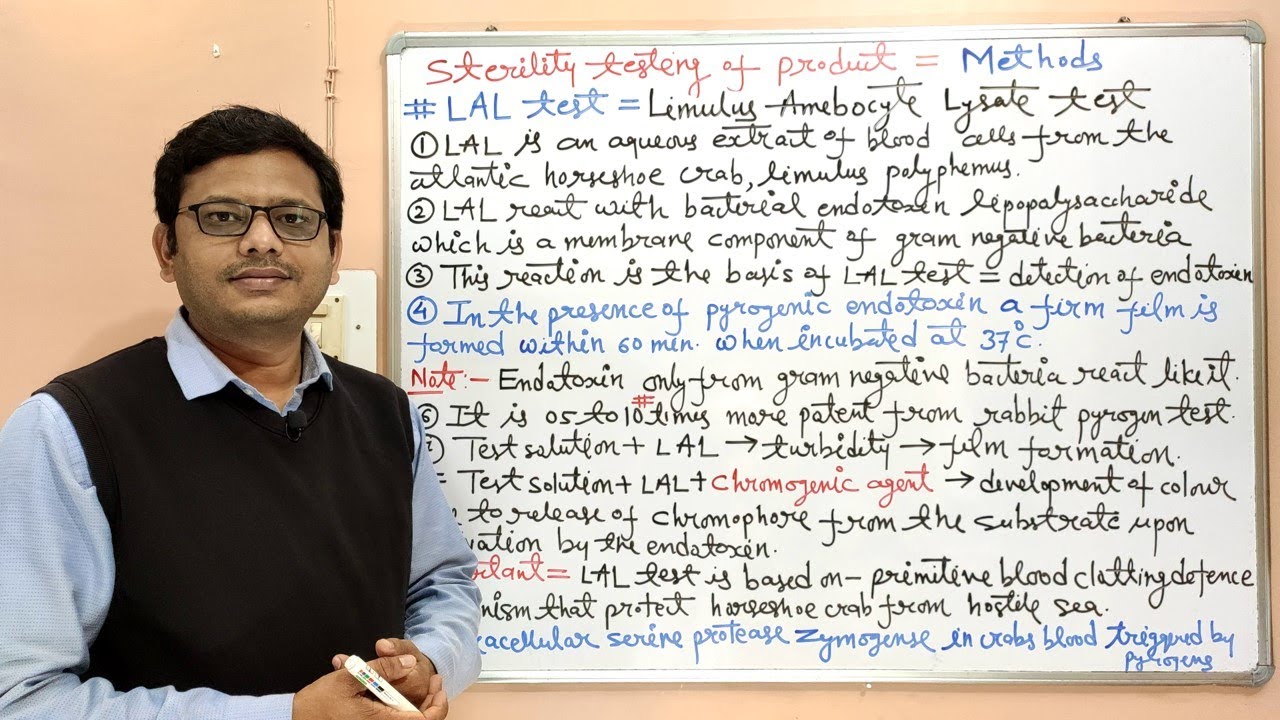 Sterility testing of product = Methods
# LAL test = Limulus Amebocyte Lysate test
① LAL is an aqueous extract of blood cells from the
atlantic horseshoe crab, limulus polyphemus.
② LAL react with bacterial endotoxin lipopolysaccharide
which is a membrane component of gram negative bacteria
③ This reaction is the basis of LAL test = detection of endotoxin
④ In the presence of pyrogenic endotoxin a firm film is
formed within 60 min. when incubated at 37°C.
Note:- Endotoxin only from gram negative bacteria react like it.
#
⑥ It is 05 to 10 times more potent from rabbit pyrogen test.
Test solution + LAL → turbidity → film formation.
= Test solution + LAL + Chromogenic agent → development of colour
to release of chromophore from the substrate upon
vation by the endotoxin.
tant = LAL test is based on - primitive blood clotting defence
nism that protect horseshoe crab from hostile sea.
acellular serine protease zymogense in crabs blood triggered by
pyrogens